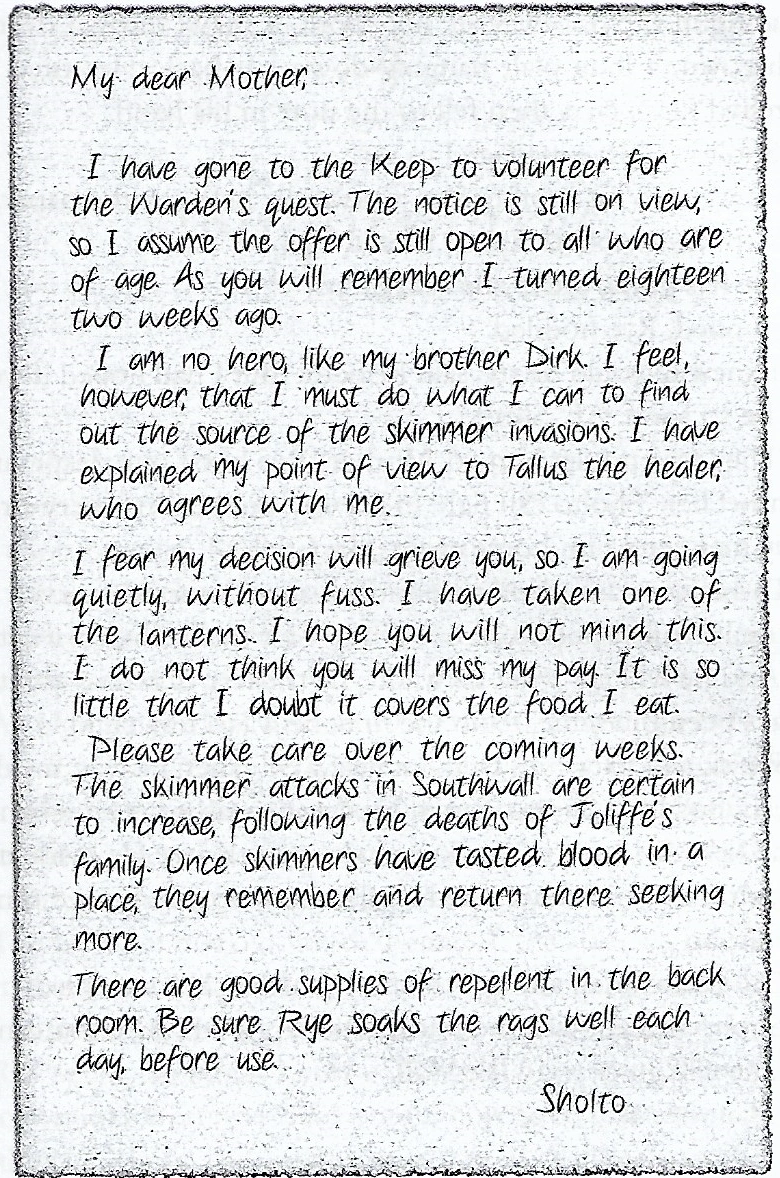 My dear Mother,
I have gone to the Keep to volunteer for
the Warden's quest. The notice is still on view,
so I assume the offer is still open to all who are
of age. As you will remember I turned eighteen
two weeks ago.
I am no hero, like my brother Dirk. I feel,
however, that I must do what I can to find
out the source of the skimmer invasions. I have
explained my point of view to Tallus the healer,
who agrees with me.
I fear my decision will grieve you, so I am going
quietly, without fuss. I have taken one of
the lanterns. I hope you will not mind this.
I do not think you will miss my pay. It is so
little that I doubt it covers the food I eat.
Please take care over the coming weeks.
The skimmer attacks in Southwall are certain
to increase, following the deaths of Joliffe's
family. Once skimmers have tasted blood in a
place, they remember and return there seeking
more.
There are good supplies of repellent in the back
room. Be sure Rye soaks the rags well each
day, before use.
Sholto